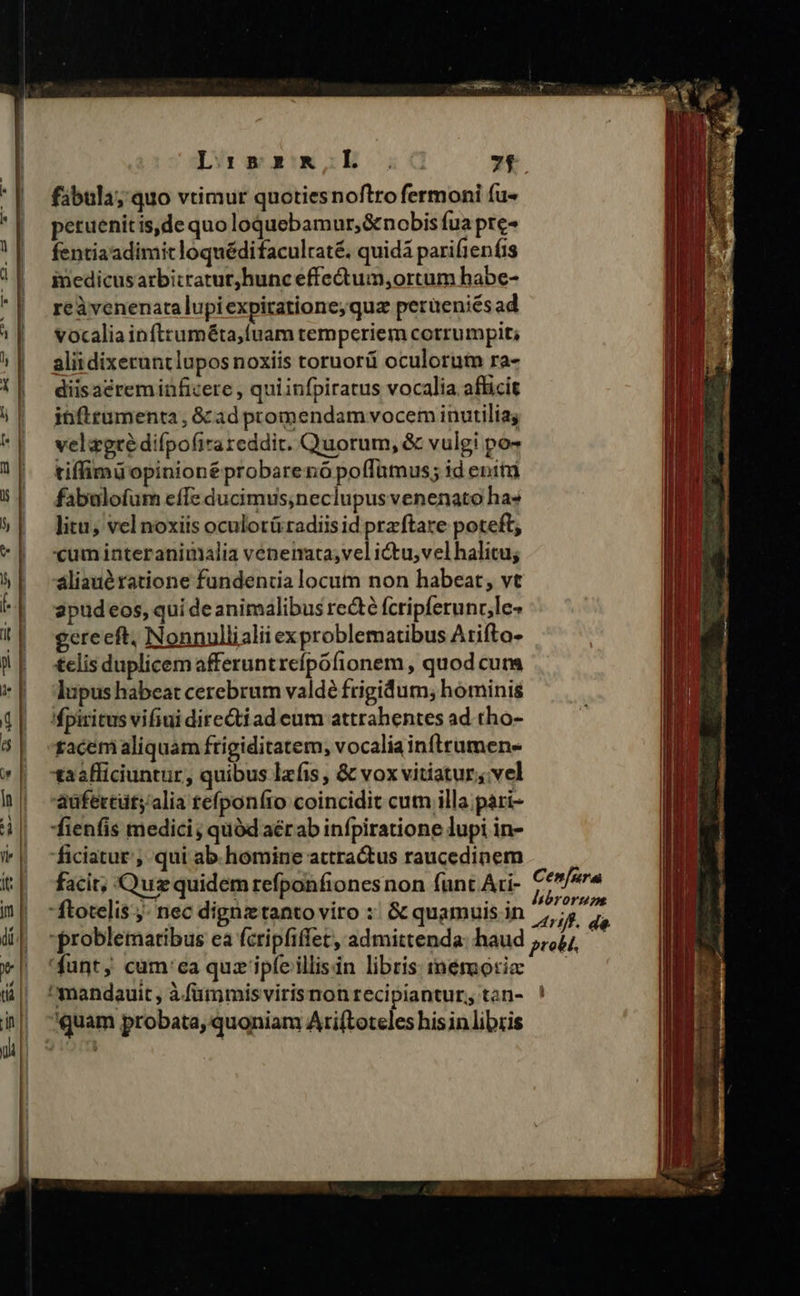 LIBER I. 75
fabula, quo vtimur quoties noſtro ſermoni ſu-
peruenit is, de quo loquebamur, & nobis ſua præ-
ſentia adimit loquēdi facultatē. quidā pariſienſis
medicus arbitratur, hunc effectum, ortum habe-
re à venenata lupi expiratione, quæ perueniēs ad
vocalia inſtrumēta, ſuam temperiem corrumpit;
alii dixerunt lupos noxiis toruorū oculorum ra-
diis aërem inficere, qui inſpiratus vocalia afficit
inſtrumenta, & ad promendam vocem inutilia,
vel ægrè diſpoſita reddit. Quorum, & vulgi po-
tiſſimū opinionē probare nō poſſumus; id enim
fabuloſum eſſe ducimus, nec lupus venenato ha-
litu, vel noxiis oculorū radiis id præſtare poteſt,
cum inter animalia venenata, vel ictu, vel halitu,
aliauè ratione fundentia locum non habeat, vt
apud eos, qui de animalibus rectè ſcripſerunt, le-
gere eſt. Nonnulli alii ex problematibus Ariſto-
telis duplicem afferunt reſpōſionem, quod cum
lupus habeat cerebrum valdè frigidum, hominis
ſpiritus viſiui directi ad eum attrahentes ad tho-
racem aliquam frigiditatem, vocalia inſtrumen-
ta afficiuntur, quibus læſis, & vox vitiatur, vel
aufertur; alia reſponſio coincidit cum illa pari-
ſienſis medici, quòd aër ab inſpiratione lupi in-
ficiatur, qui ab homine attractus raucedinem
facit, Quæ quidem reſponſiones non ſunt Ari-
ſtotelis, nec dignæ tanto viro : & quamuis in
problematibus ea ſcripſiſſet, admittenda haud
ſunt, cum ea quæ ipſe illis in libris memoriæ
mandauit, à ſummis viris non recipiantur, tan-
quam probata, quoniam Ariſtoteles his in libris
Cenſura
librorum
Ariſt. de
probl.